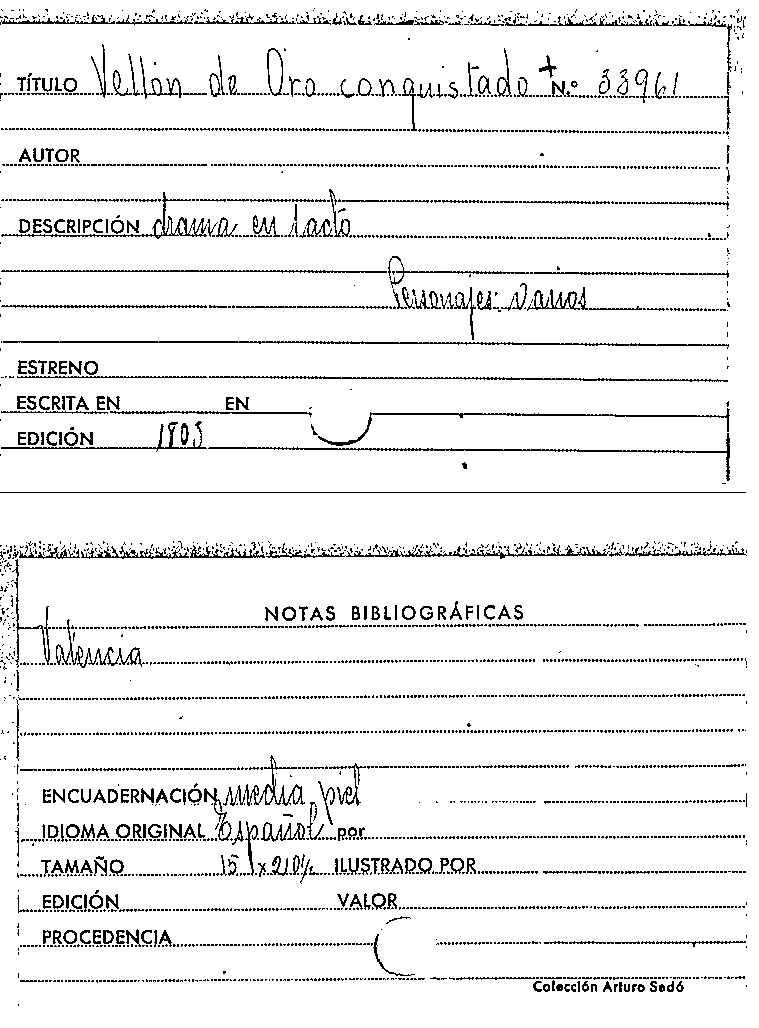 TÍTULO Vellón de Oro conquistado + N.º 33961
AUTOR
DESCRIPCIÓN drama en 1 acto
Personajes: varios
ESTRENO
ESCRITA EN EN
EDICIÓN
NOTAS BIBLIOGRÁFICAS
Valencia
ENCUADERNACIÓN media piel
IDIOMA ORIGINAL Español por
TAMAÑO 15 x ILUSTRADO POR
EDICIÓN VALOR
PROCEDENCIA
Colección Arturo Sedó